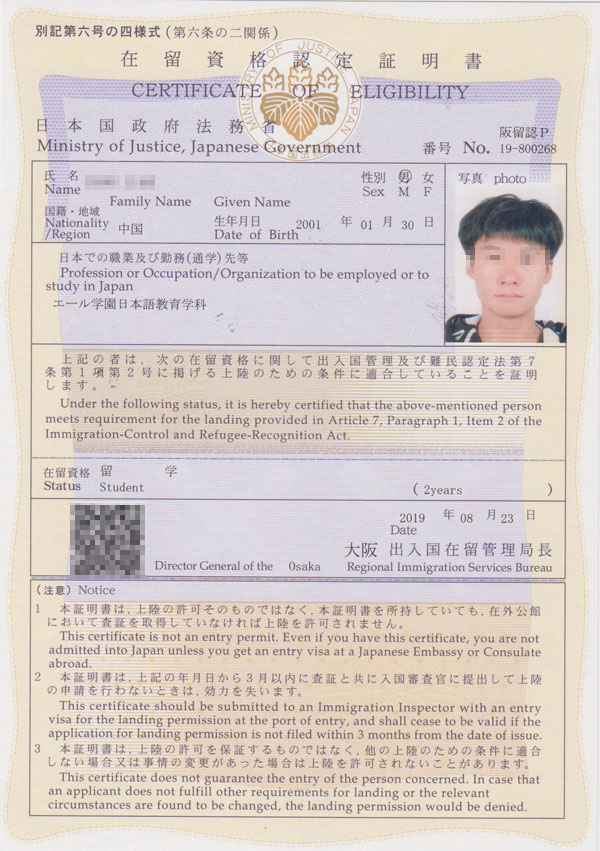 別記第六号の四様式(第六条の二関係)
在留資格認定証明書
CERTIFICATE OF ELIGIBILITY
MINISTRY OF JUSTICE, JAPAN
日本国政府法務省
阪留認P
Ministry of Justice, Japanese Government
番号 No. 19-800268
氏名
性別 男 女
写真 photo
Name
Sex M F
Family Name Given Name
国籍・地域
生年月日 2001 年 01 月 30 日
Nationality
/Region
中国
Date of Birth
日本での職業及び勤務(通学)先等
Profession or Occupation/Organization to be employed or to
study in Japan
エール学園日本語教育学科
上記の者は、次の在留資格に関して出入国管理及び難民認定法第7
条第1項第2号に掲げる上陸のための条件に適合していることを証明
します。
Under the following status, it is hereby certified that the above-mentioned person
meets requirement for the landing provided in Article 7, Paragraph 1, Item 2 of the
Immigration-Control and Refugee-Recognition Act.
在留資格 留 学
Status Student
( 2years )
2019 年 08 月 23 日
Date
大阪 出入国在留管理局長
Director General of the Osaka Regional Immigration Services Bureau
(注意) Notice
1 本証明書は、上陸の許可そのものではなく、本証明書を所持していても、在外公館
において査証を取得していなければ上陸を許可されません。
This certificate is not an entry permit. Even if you have this certificate, you are not
admitted into Japan unless you get an entry visa at a Japanese Embassy or Consulate
abroad.
2 本証明書は、上記の年月日から3月以内に査証と共に入国審査官に提出して上陸
の申請を行わないときは、効力を失います。
This certificate should be submitted to an Immigration Inspector with an entry
visa for the landing permission at the port of entry, and shall cease to be valid if the
application for landing permission is not filed within 3 months from the date of issue.
3 本証明書は、上陸の許可を保証するものではなく、他の上陸のための条件に適合
しない場合又は事情の変更があった場合は上陸を許可されないことがあります。
This certificate does not guarantee the entry of the person concerned. In case that
an applicant does not fulfill other requirements for landing or the relevant
circumstances are found to be changed, the landing permission would be denied.